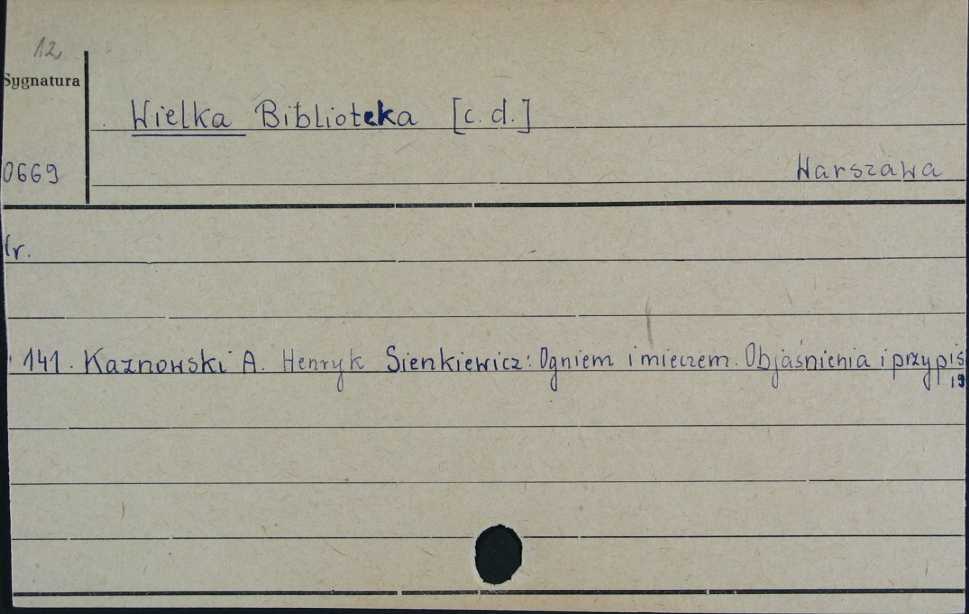 12
Sygnatura
Wielka Biblioteka [c. d.]
0669
Warszawa
Nr.
141. Kaznowski A. Henryk Sienkiewicz: Ogniem i mieczem. Objaśnienia i przypis
19